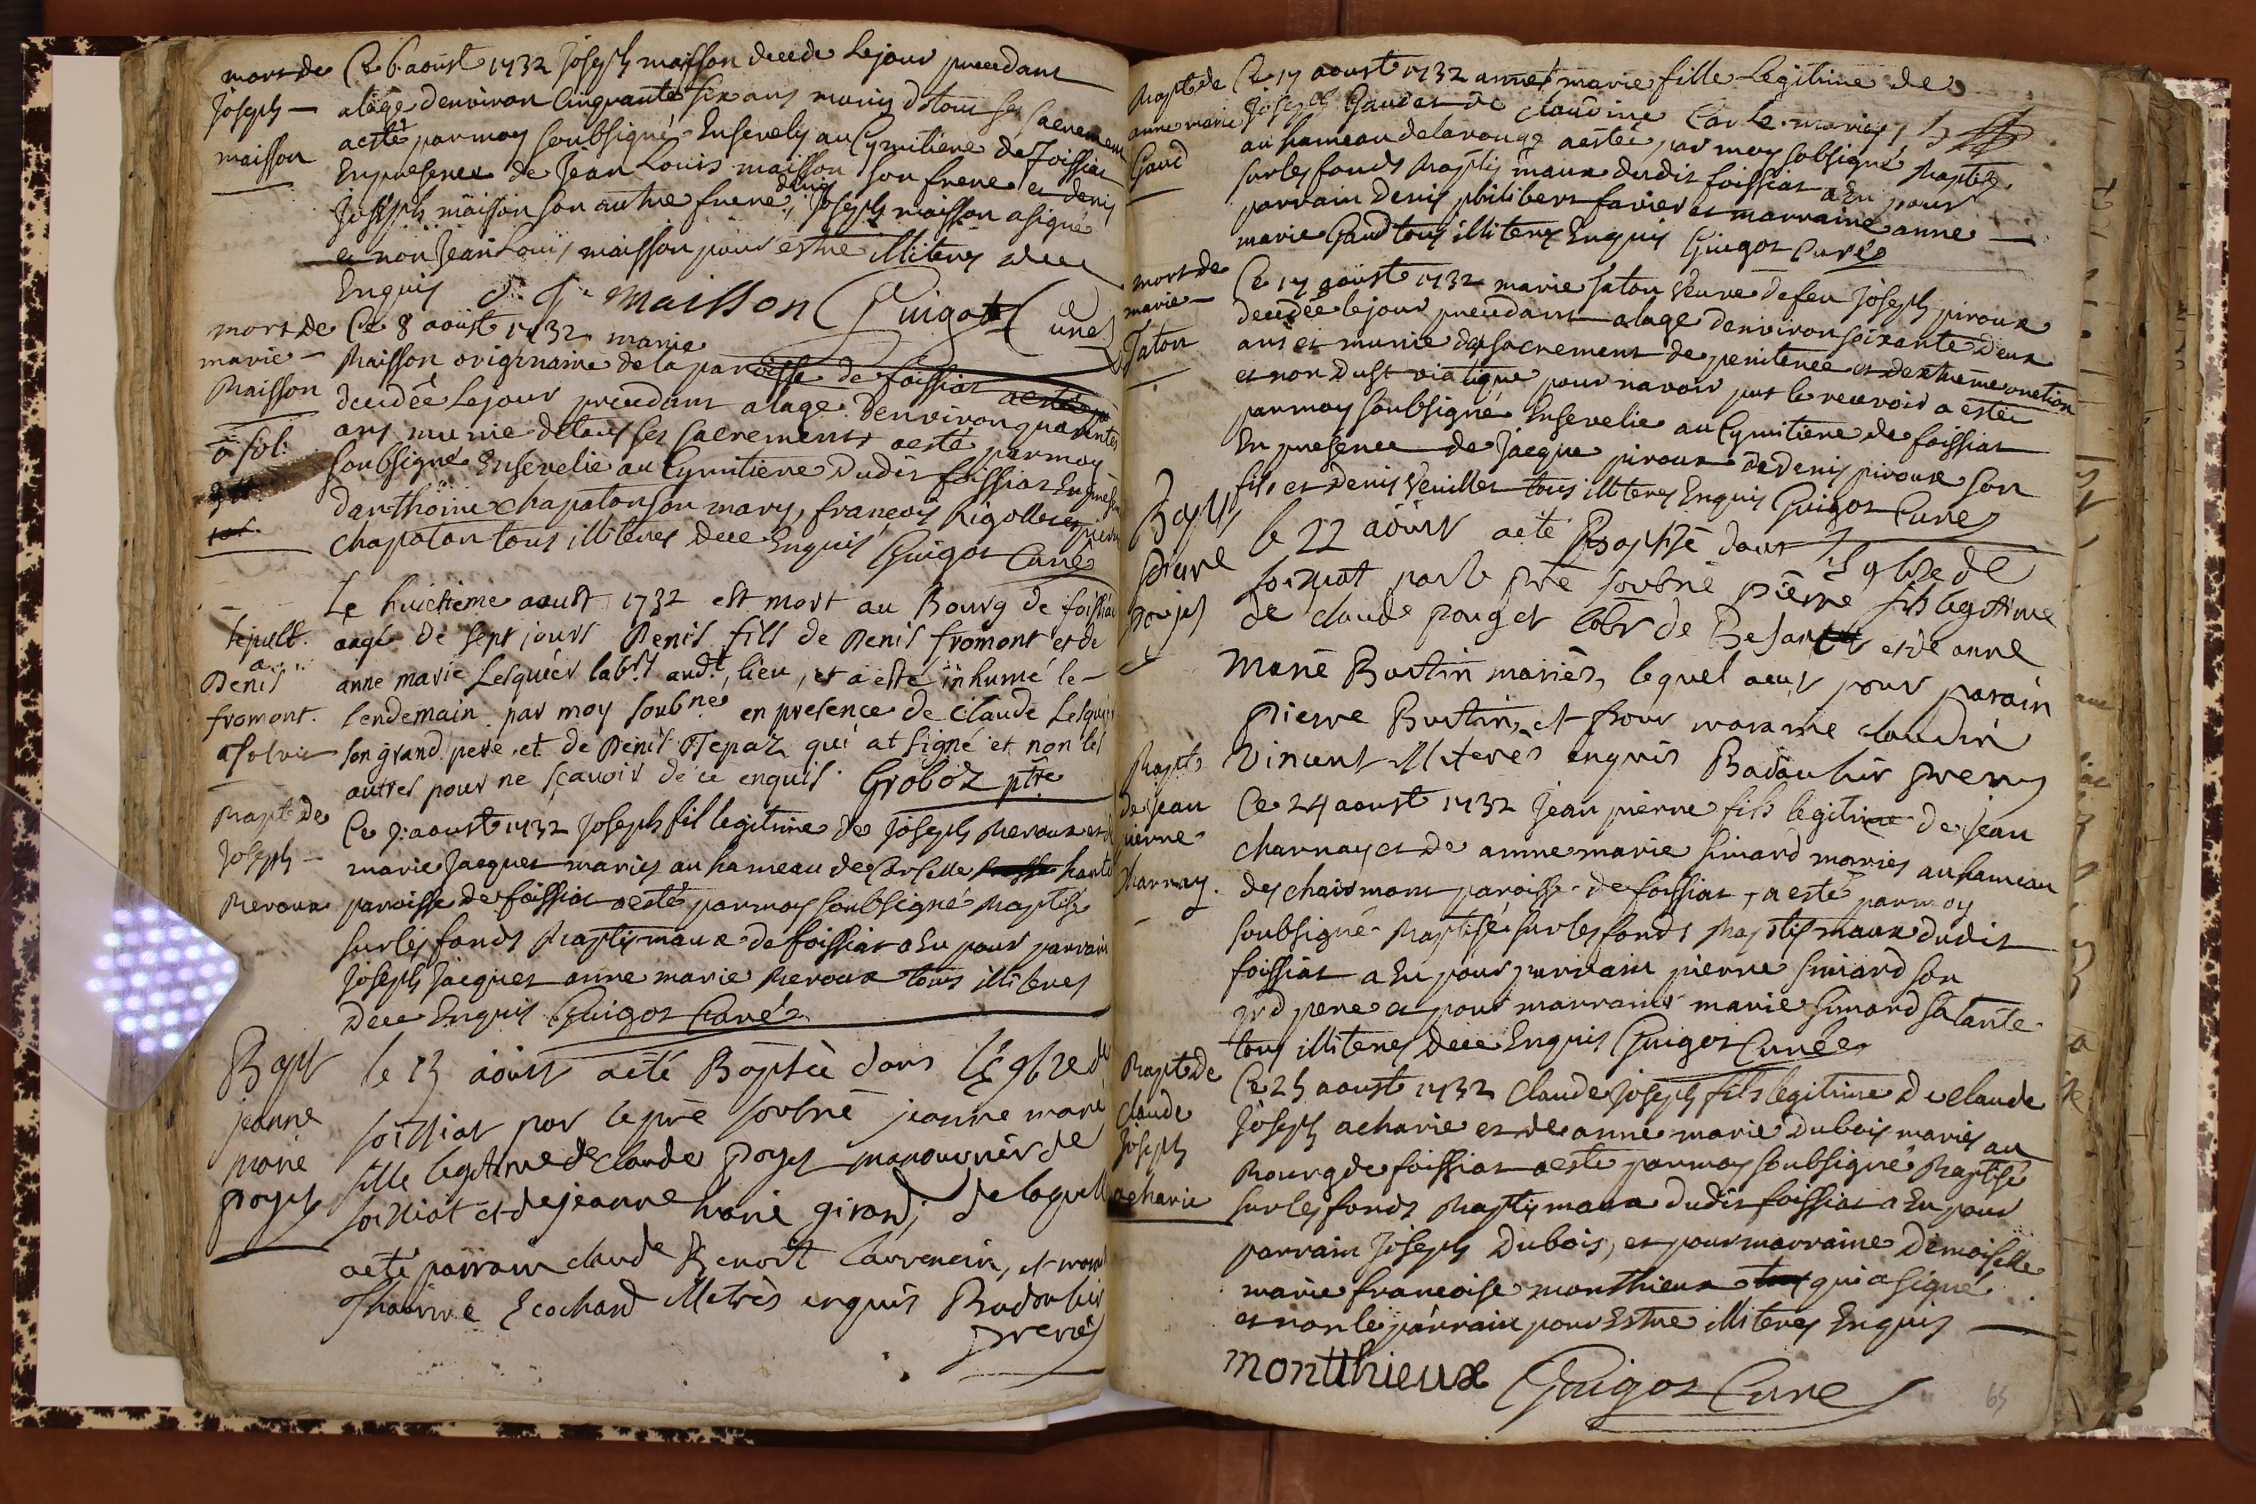 mort de
Joseph —
maisson
Ce 6 aoust 1732 Joseph maisson decede le jour precedant
a lage denviron cinquante six ans muny de tous ses sacrements
a esté par moy soubsigné Ensevely au Cymitiere de foissiat
En presence de Jean Louis maisson son frere et denis
Joseph maisson son autre frere, denis Joseph maisson a signé
et non Jean Louis maisson pour estre illiteres de ce
Enquis d. J. maisson Guigot Curé
mort de
marie —
Maisson
Ce 8 aoust 1732 marie
Maisson originaire de la paroisse de foissiat
decedée le jour precedant a lage denviron quarante
ans munie de tous ses sacrements a esté par moy
soubsigné Ensevelie au Cymitiere dudit foissiat En presence
danthoine chapaton son mary, francois Rigollet et pierre
chapaton tous illiteres de ce Enquis Guigot Curé
sepult.
a
Denis
fromont.
asolvit
Le huictieme aoust 1732 est mort au Bourg de foissiat
aagé de sept jours Denis fils de Denis fromont et de
anne marie Lesquier lab.rs aud.t lieu, et a esté inhumé le —
lendemain par moy soub.né en presence de Claude Lesquier
son grand pere et de Denis Tepaz qui at signé et non les
autres pour ne sçavoir de ce enquis. Groboz ptre
Bapt de
Joseph —
Meroux
Ce 9 aoust 1732 Joseph fil legitime de Joseph Meroux et de
marie Jacquet mariés au hameau de haute
paroisse de foissiat a esté par moy soubsigné Baptisé
sur les fonds Baptismaux de foissiat a Eu pour parrain
Joseph Jacquet anne marie Meroux tous illiteres
De ce Enquis Guigot Curé
Bapt
jeanne
marie
poget
le 13 aoust a eté Baptisé dans l'eglize de
foissiat par le prē soubné jeanne marie
fille legitime de Claude poget manouvrier de
foissiat et de jeanne marie girard, de laquelle
a eté parrain claude Benoit Laurencin, et
Ecochard illitrés enquis Badoulier
Bapt de
anne marie
Gaud
Ce 17 aoust 1732 anne marie fille legitime de
Joseph Gaudet de Claudine mariés
au hameau de la rouge a esté par moy sobsigné Baptisée
sur les fonds Baptismaux dudit foissiat a Eu pour
parrain Denis philibert favier et marraine anne —
marie Gaud tous illiteres Enquis Guigot Curé
mort de
marie —
Jaton
Ce 17 aoust 1732 marie Jaton Veuve de feu Joseph piroux
decedée le jour precedant a lage denviron soixante deux
ans et munie des sacrement de penitence et dextreme onction
et non du St viatique pour navoir put le recevoir a esté
par moy soubsigné Ensevelie au Cymitiere de foissiat
En presence de Jacque piroux de denis piroux son
fils et Denis Veuillet tous illiteres Enquis Guigot Curé
Bapt
pierre
pouget
le 22 aoust a eté Baptisé dans l'eglize de
foissiat par le prē soubné pierre fils legitime
de claude pouget labr de et de anne
Marie Bertin mariés, lequel a eut pour parain
pierre Bertin, et pour maraine claudin
Vincent illiteres enquis Badoulier
Bapt
de Jean
pierre
Charnay.
Ce 24 aoust 1732 Jean pierre fils legitime de Jean
Charnay et de anne marie Simard mariés au hameau
des chaismont paroisse de foissiat, a esté par moy
soubsigné Baptisé sur les fonds Baptismaux dudit
foissiat a Eu pour parrain pierre Simard son
grd pere et pour marraine marie Simard sa tante
tous illiteres de ce Enquis Guigot Curé
Bapt de
Claude
Joseph
acharie
Ce 25 aoust 1732 Claude Joseph fils legitime de Claude
Joseph acharie et de anne marie Dubois mariés au
Bourg de foissiat a esté par moy soubsigné Baptisé
sur les fonds Baptismaux dudit foissiat a Eu pour
parrain Joseph Dubois, et pour marraine Demoiselle
marie francoise monthieux qui a signé
et non le parrain pour Estre illiteres Enquis —
montthieux Guigot Curé
65